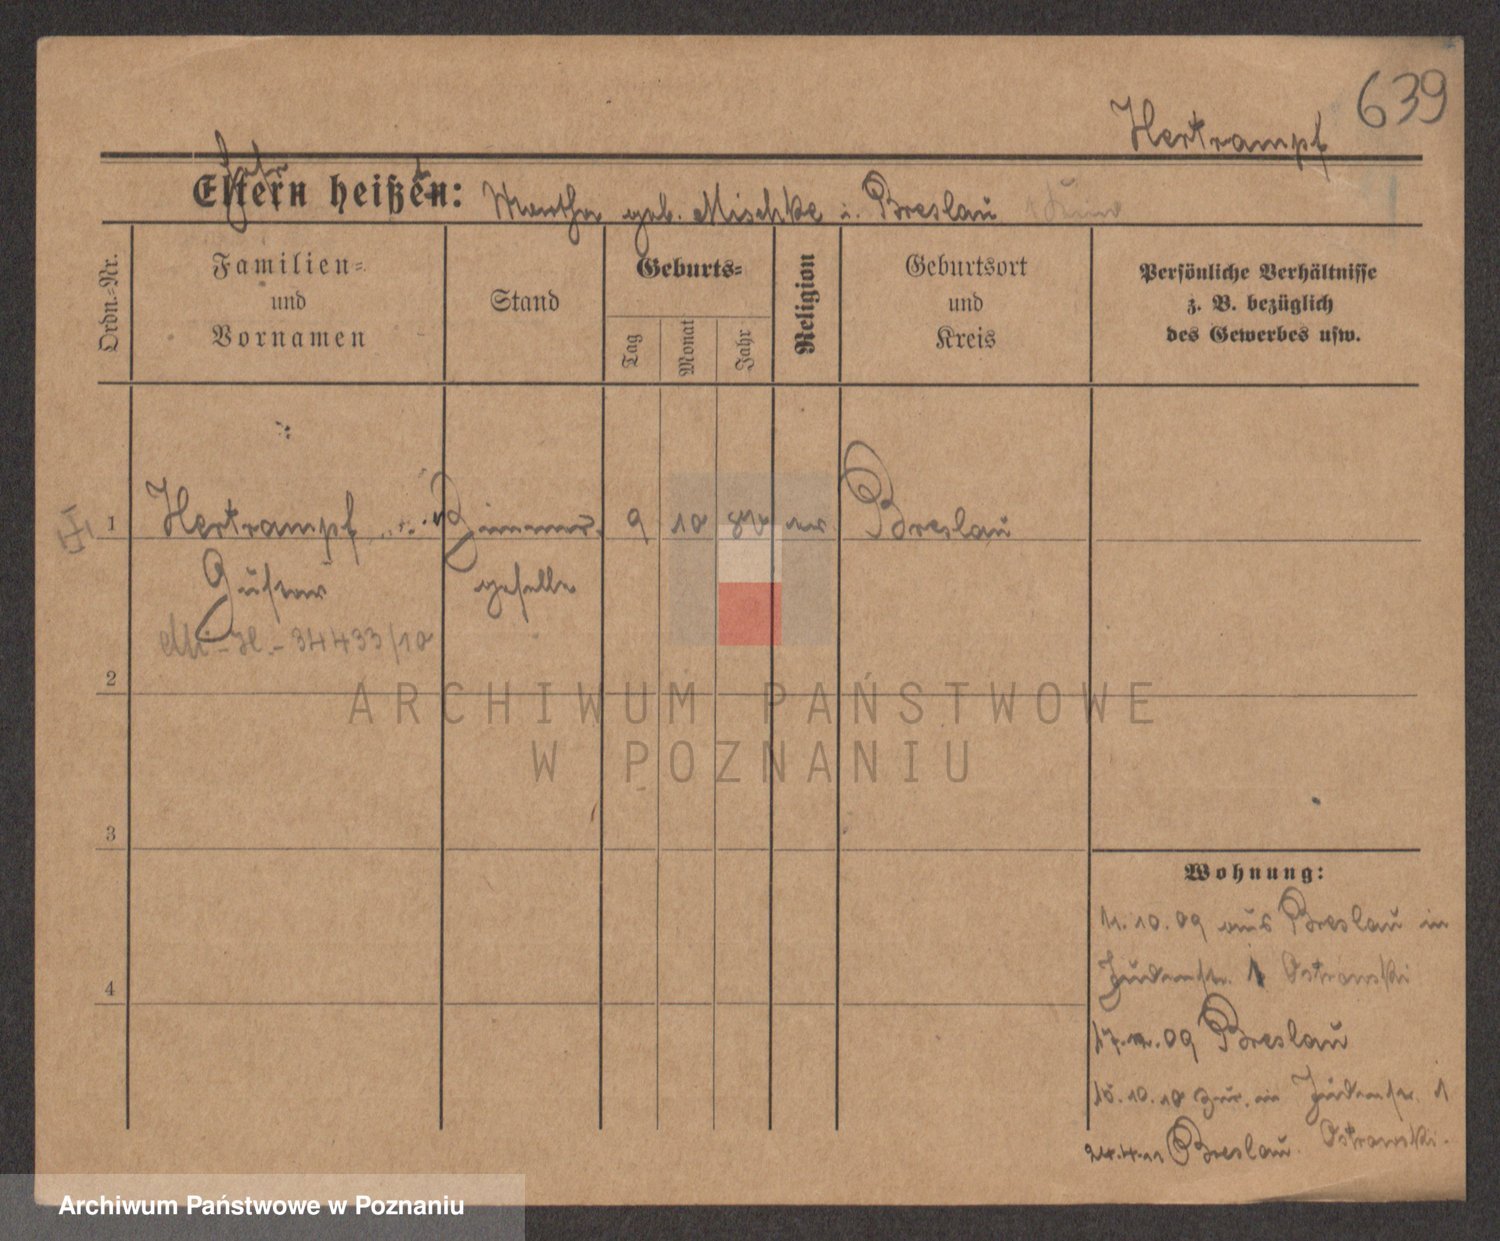 639
Hertrampf
Eltern heißen: Martha geb. Mischke i. Breslau
Ordn.-Nr.
Familien-
und
Vornamen
Stand
Geburts-
Tag
Monat
Jahr
Religion
Geburtsort
und
Kreis
Persönliche Verhältnisse
z. B. bezüglich
des Gewerbes usw.
1 Hertrampf Zimmer- 9 10 Breslau
Gustav geselle
M.-H.-34433/10
2
3
4
Wohnung:
11.10.09 aus Breslau in
Judenstr. 1 Ostrowski
09 Breslau
10.10 zur. in Judenstr. 1
24.4.11 Breslau. Ostrowski.
ARCHIWUM PAŃSTWOWE
W POZNANIU
Archiwum Państwowe w Poznaniu